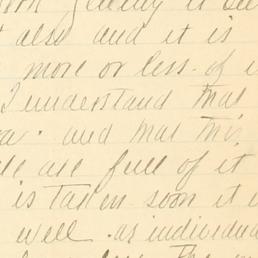 it
also and it is
more or less of
I understand that
and that this
are full of it
is taken soon it
well. as individua